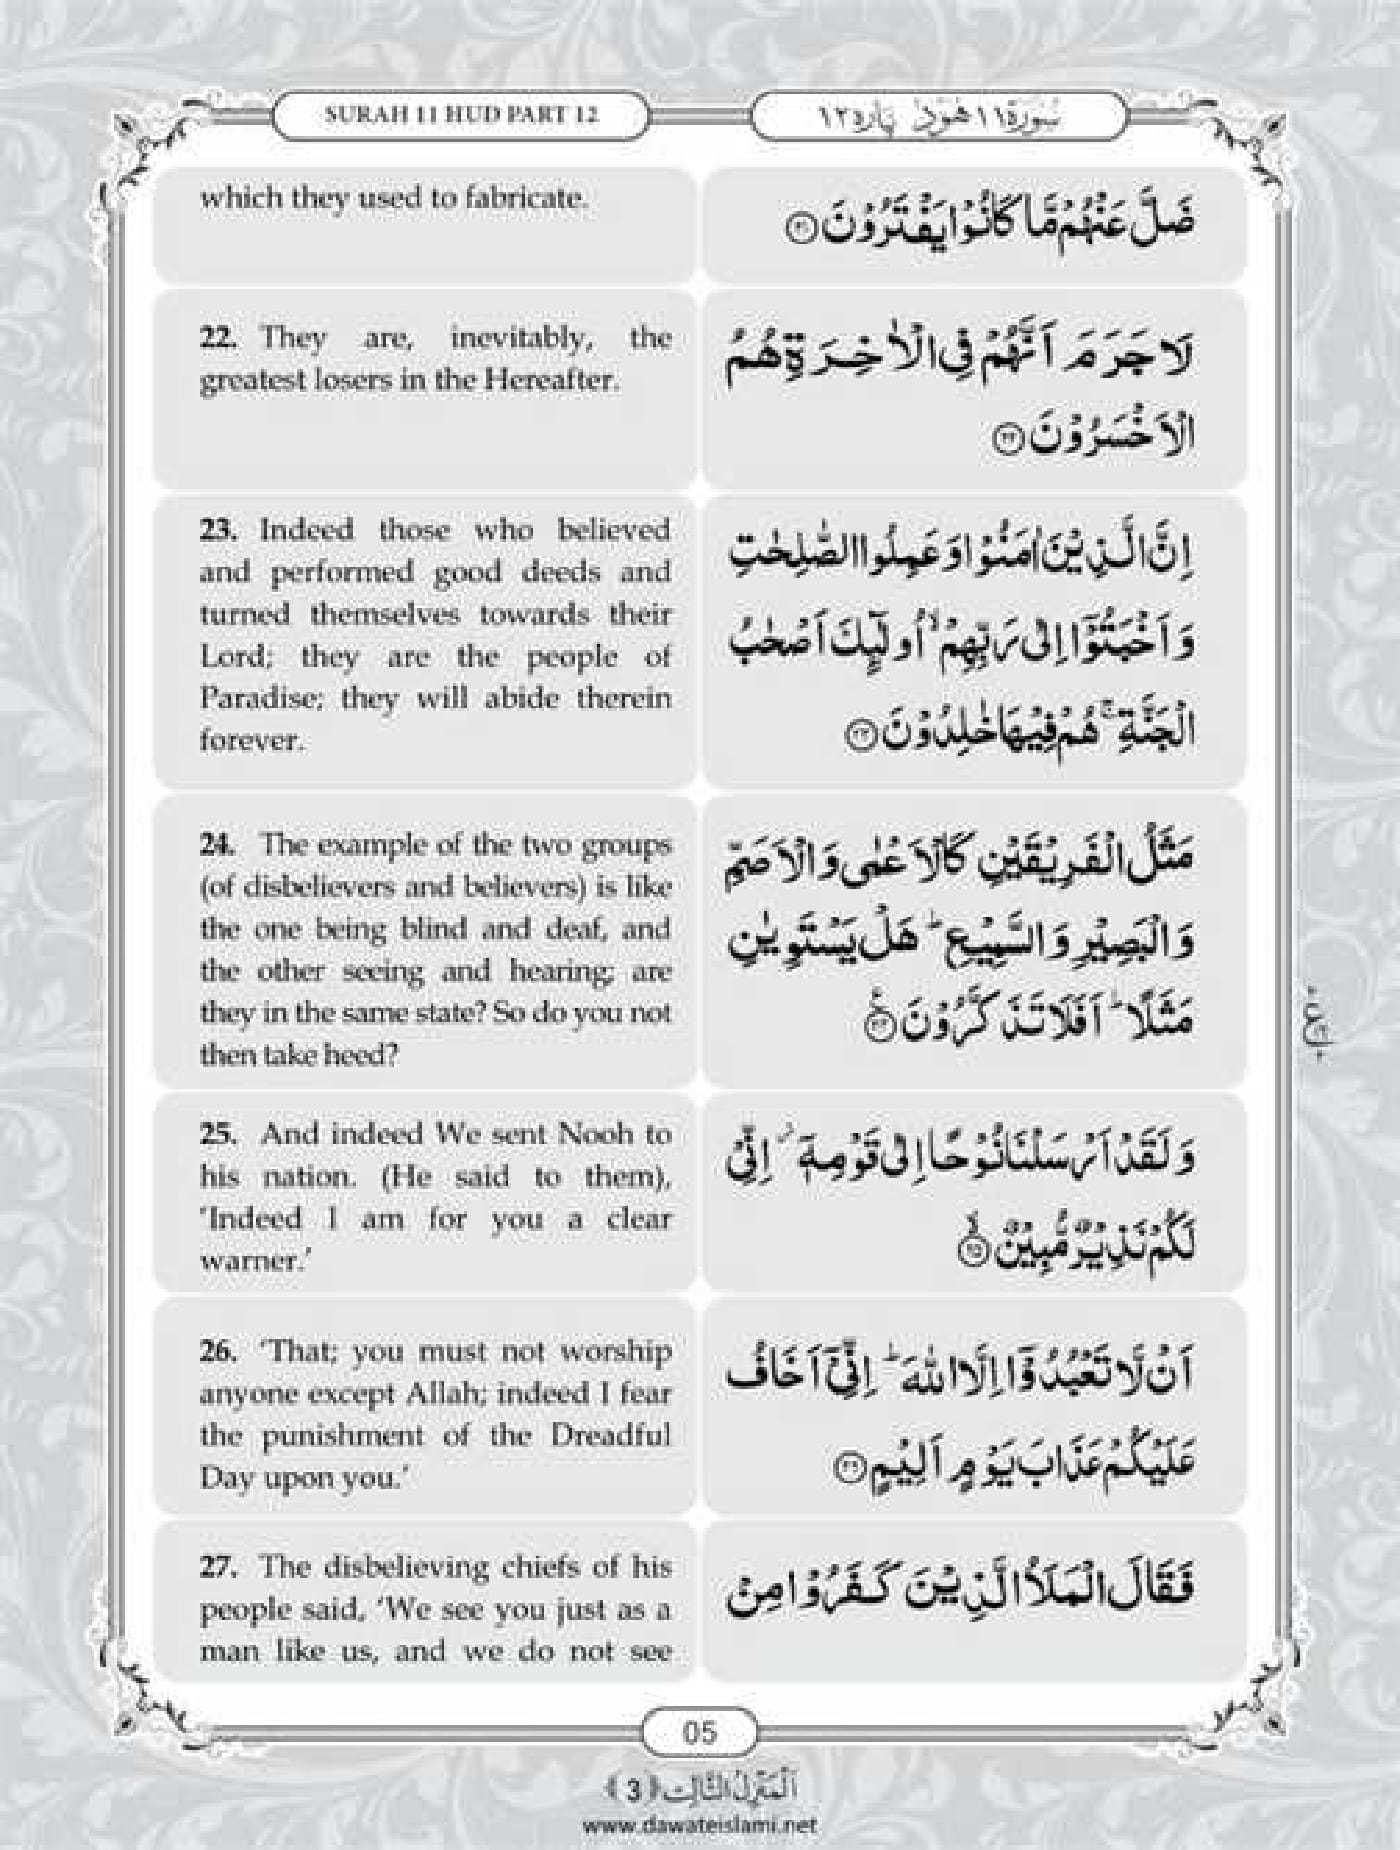 SURAH 11 HUD PART 12
سُوْرَة ١١ هُوْد پاره ١٢
which they used to fabricate.
ضَلَّ عَنْهُمْ مَّا كَانُوْا يَفْتَرُوْنَ ﴿٢١﴾
22. They are, inevitably, the
greatest losers in the Hereafter.
لَا جَرَمَ اَنَّهُمْ فِى الْاٰخِرَةِ هُمُ
الْاَخْسَرُوْنَ ﴿٢٢﴾
23. Indeed those who believed
and performed good deeds and
turned themselves towards their
Lord; they are the people of
Paradise; they will abide therein
forever.
اِنَّ الَّذِيْنَ اٰمَنُوْا وَعَمِلُوا الصّٰلِحٰتِ
وَاَخْبَتُوْۤا اِلٰى رَبِّهِمْ ۙ اُولٰٓئِكَ اَصْحٰبُ
الْجَنَّةِ ۚ هُمْ فِيْهَا خٰلِدُوْنَ ﴿٢٣﴾
24. The example of the two groups
(of disbelievers and believers) is like
the one being blind and deaf, and
the other seeing and hearing; are
they in the same state? So do you not
then take heed?
مَثَلُ الْفَرِيْقَيْنِ كَالْاَعْمٰى وَالْاَصَمِّ
وَالْبَصِيْرِ وَالسَّمِيْعِ ؕ هَلْ يَسْتَوِيٰنِ
مَثَلًا ؕ اَفَلَا تَذَكَّرُوْنَ ﴿٢٤﴾
25. And indeed We sent Nooh to
his nation. (He said to them),
‘Indeed I am for you a clear
warner.’
وَلَقَدْ اَرْسَلْنَا نُوْحًا اِلٰى قَوْمِهٖۤ ۫ اِنِّىْ
لَكُمْ نَذِيْرٌ مُّبِيْنٌ ﴿٢٥﴾
26. ‘That; you must not worship
anyone except Allah; indeed I fear
the punishment of the Dreadful
Day upon you.’
اَنْ لَّا تَعْبُدُوْۤا اِلَّا اللّٰهَ ؕ اِنِّىْۤ اَخَافُ
عَلَيْكُمْ عَذَابَ يَوْمٍ اَلِيْمٍ ﴿٢٦﴾
27. The disbelieving chiefs of his
people said, ‘We see you just as a
man like us, and we do not see
فَقَالَ الْمَلَاُ الَّذِيْنَ كَفَرُوْا مِنْ
05
اَلْمَنْزِلُ الثَّالِث ﴿3﴾
www.dawateislami.net